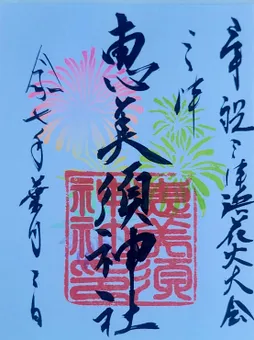 奉祝三津浜花火大会
三津
恵美須神社
令七年葉月三日
恵美須
神社印